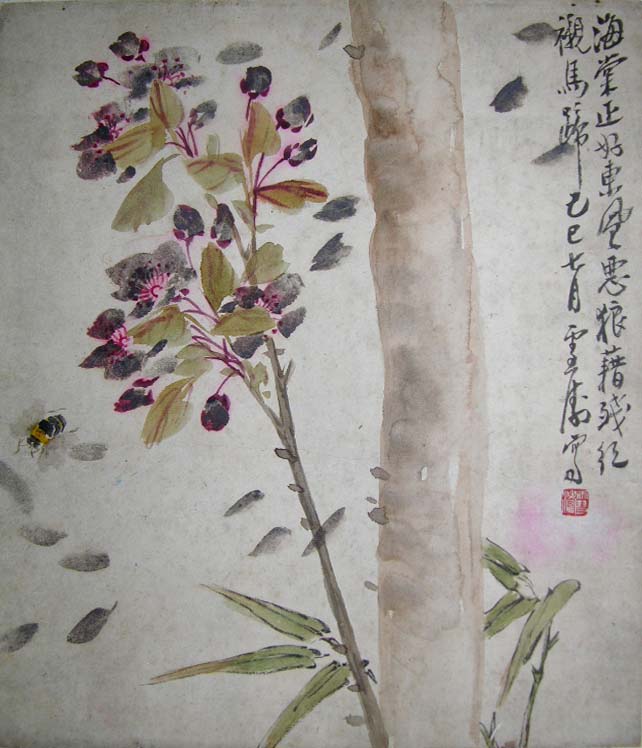 海棠正好東風惡狼藉殘紅
襯馬蹄 己巳七月 雲